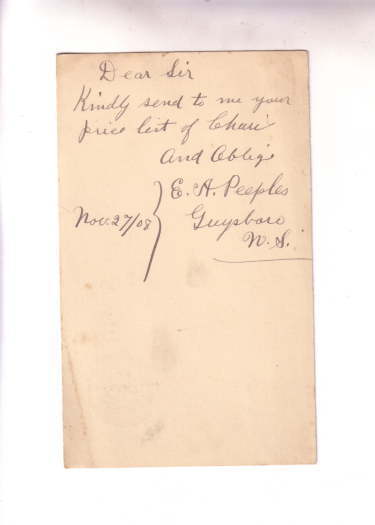 Dear Sir
Kindly send to me your
price list of Chair
And Oblige
E. A. Peeples
Nov. 27/08
Guysboro
N. S.